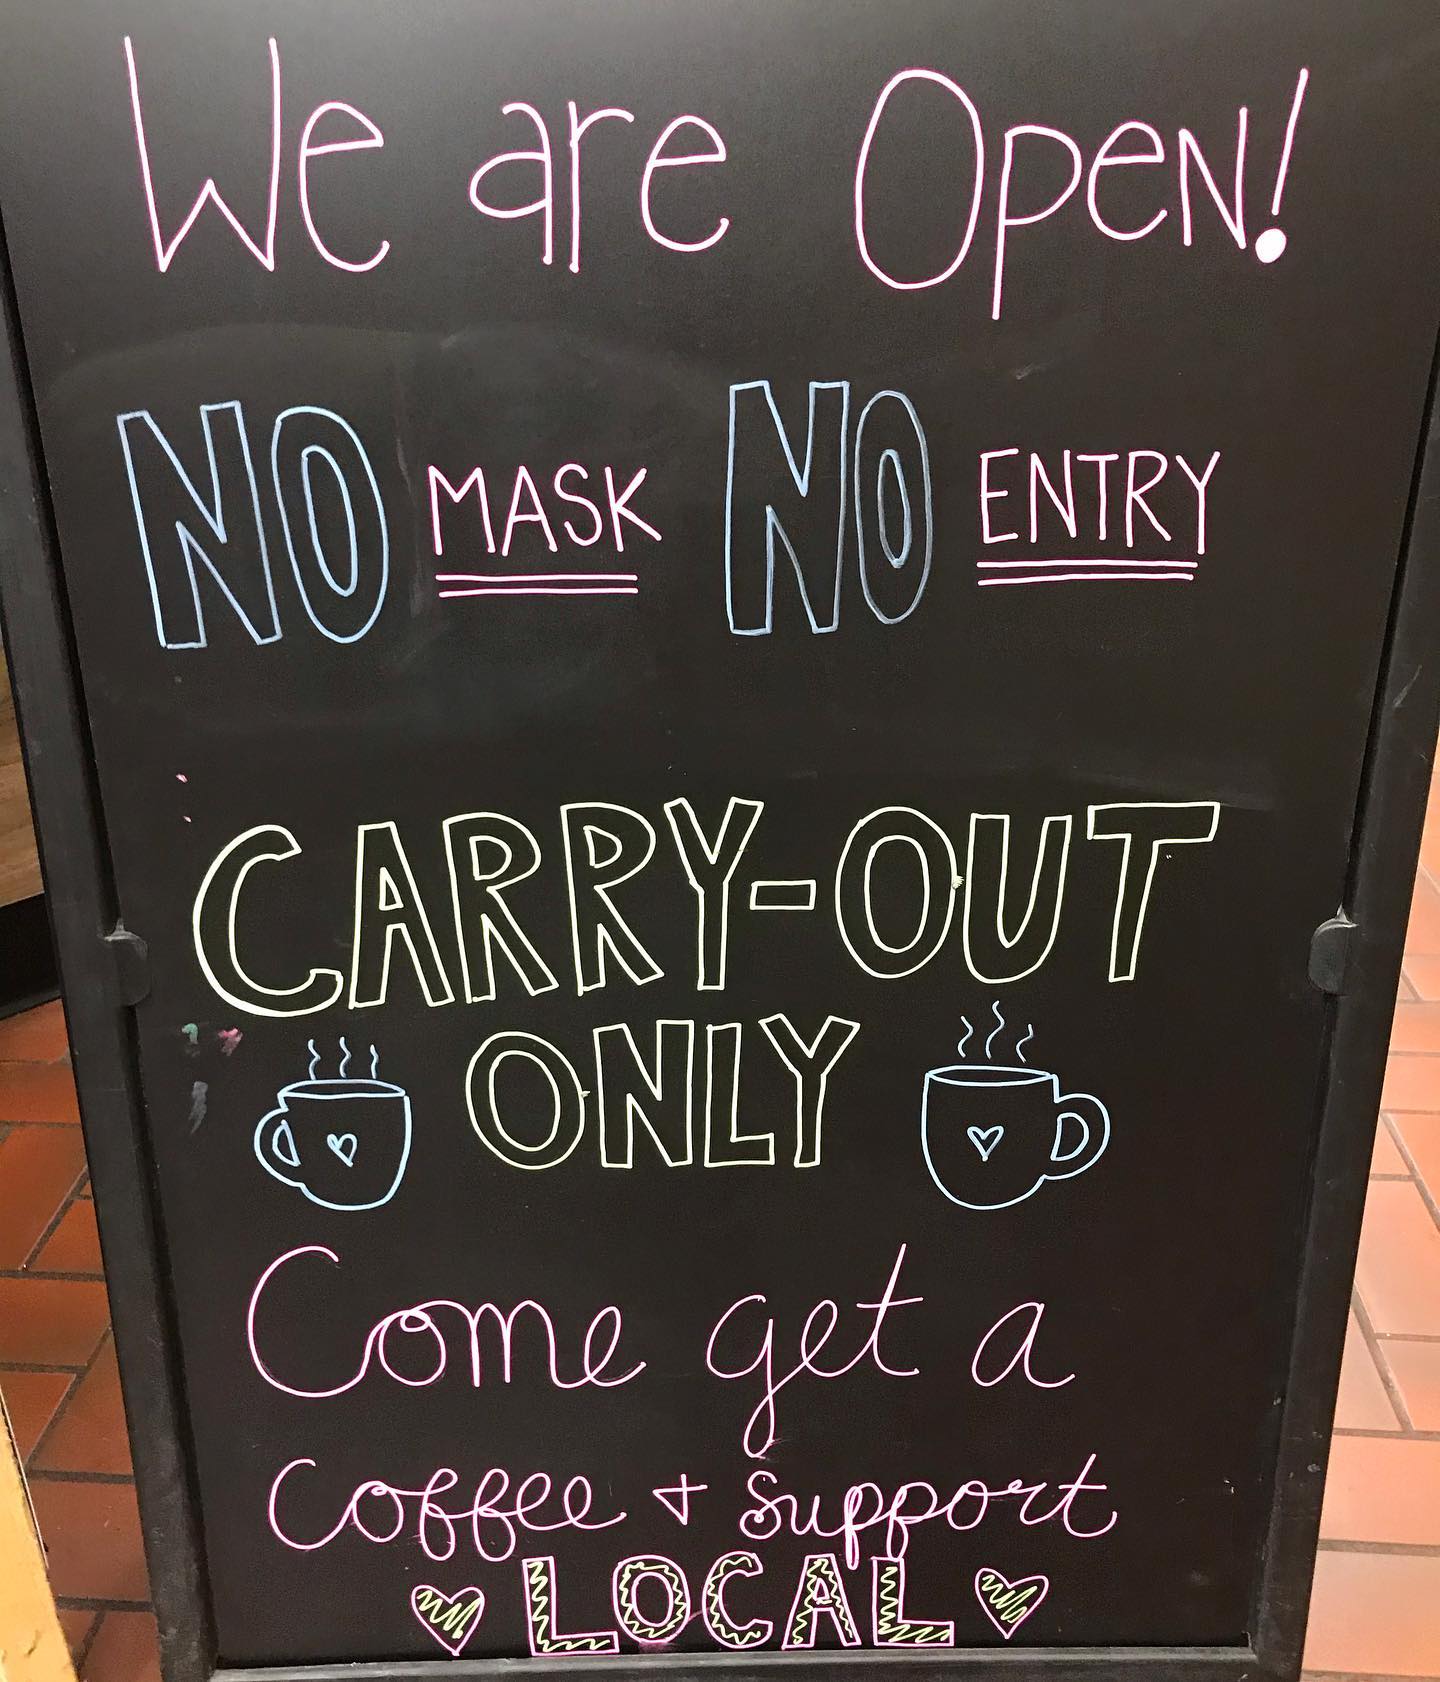 We are Open!
NO MASK NO ENTRY
CARRY-OUT
ONLY
Come get a
Coffee + support
LOCAL